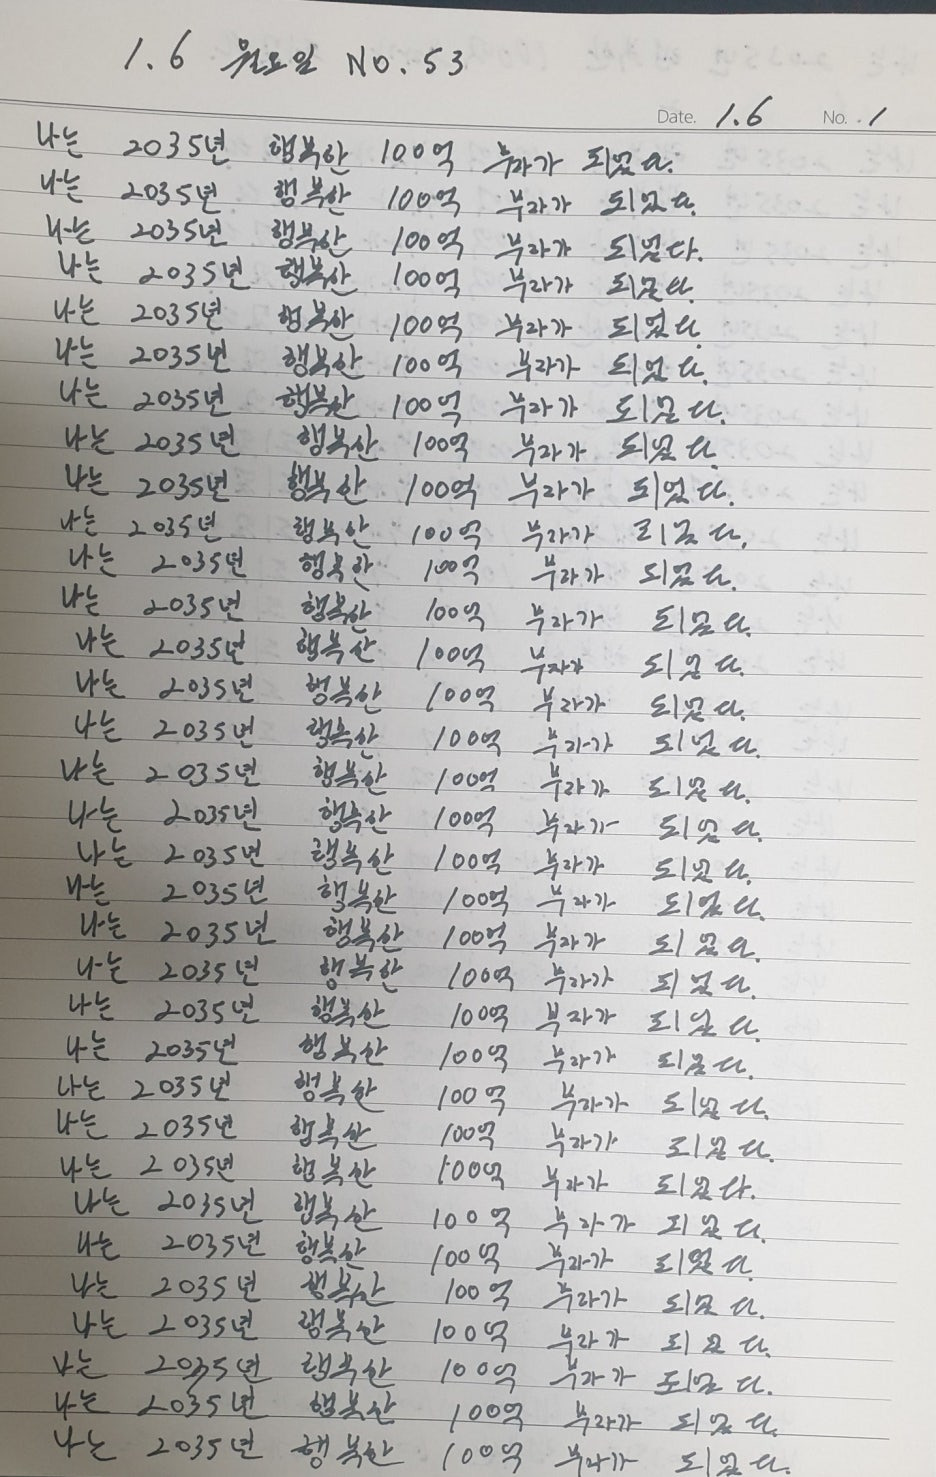 1.6 월요일 NO.53
Date. 1.6 No. 1
나는 2035년 행복한 100억 부자가 되었다.
나는 2035년 행복한 100억 부자가 되었다.
나는 2035년 행복한 100억 부자가 되었다.
나는 2035년 행복한 100억 부자가 되었다.
나는 2035년 행복한 100억 부자가 되었다.
나는 2035년 행복한 100억 부자가 되었다.
나는 2035년 행복한 100억 부자가 되었다.
나는 2035년 행복한 100억 부자가 되었다.
나는 2035년 행복한 100억 부자가 되었다.
나는 2035년 행복한 100억 부자가 되었다.
나는 2035년 행복한 100억 부자가 되었다.
나는 2035년 행복한 100억 부자가 되었다.
나는 2035년 행복한 100억 부자가 되었다.
나는 2035년 행복한 100억 부자가 되었다.
나는 2035년 행복한 100억 부자가 되었다.
나는 2035년 행복한 100억 부자가 되었다.
나는 2035년 행복한 100억 부자가 되었다.
나는 2035년 행복한 100억 부자가 되었다.
나는 2035년 행복한 100억 부자가 되었다.
나는 2035년 행복한 100억 부자가 되었다.
나는 2035년 행복한 100억 부자가 되었다.
나는 2035년 행복한 100억 부자가 되었다.
나는 2035년 행복한 100억 부자가 되었다.
나는 2035년 행복한 100억 부자가 되었다.
나는 2035년 행복한 100억 부자가 되었다.
나는 2035년 행복한 100억 부자가 되었다.
나는 2035년 행복한 100억 부자가 되었다.
나는 2035년 행복한 100억 부자가 되었다.
나는 2035년 행복한 100억 부자가 되었다.
나는 2035년 행복한 100억 부자가 되었다.
나는 2035년 행복한 100억 부자가 되었다.
나는 2035년 행복한 100억 부자가 되었다.
나는 2035년 행복한 100억 부자가 되었다.